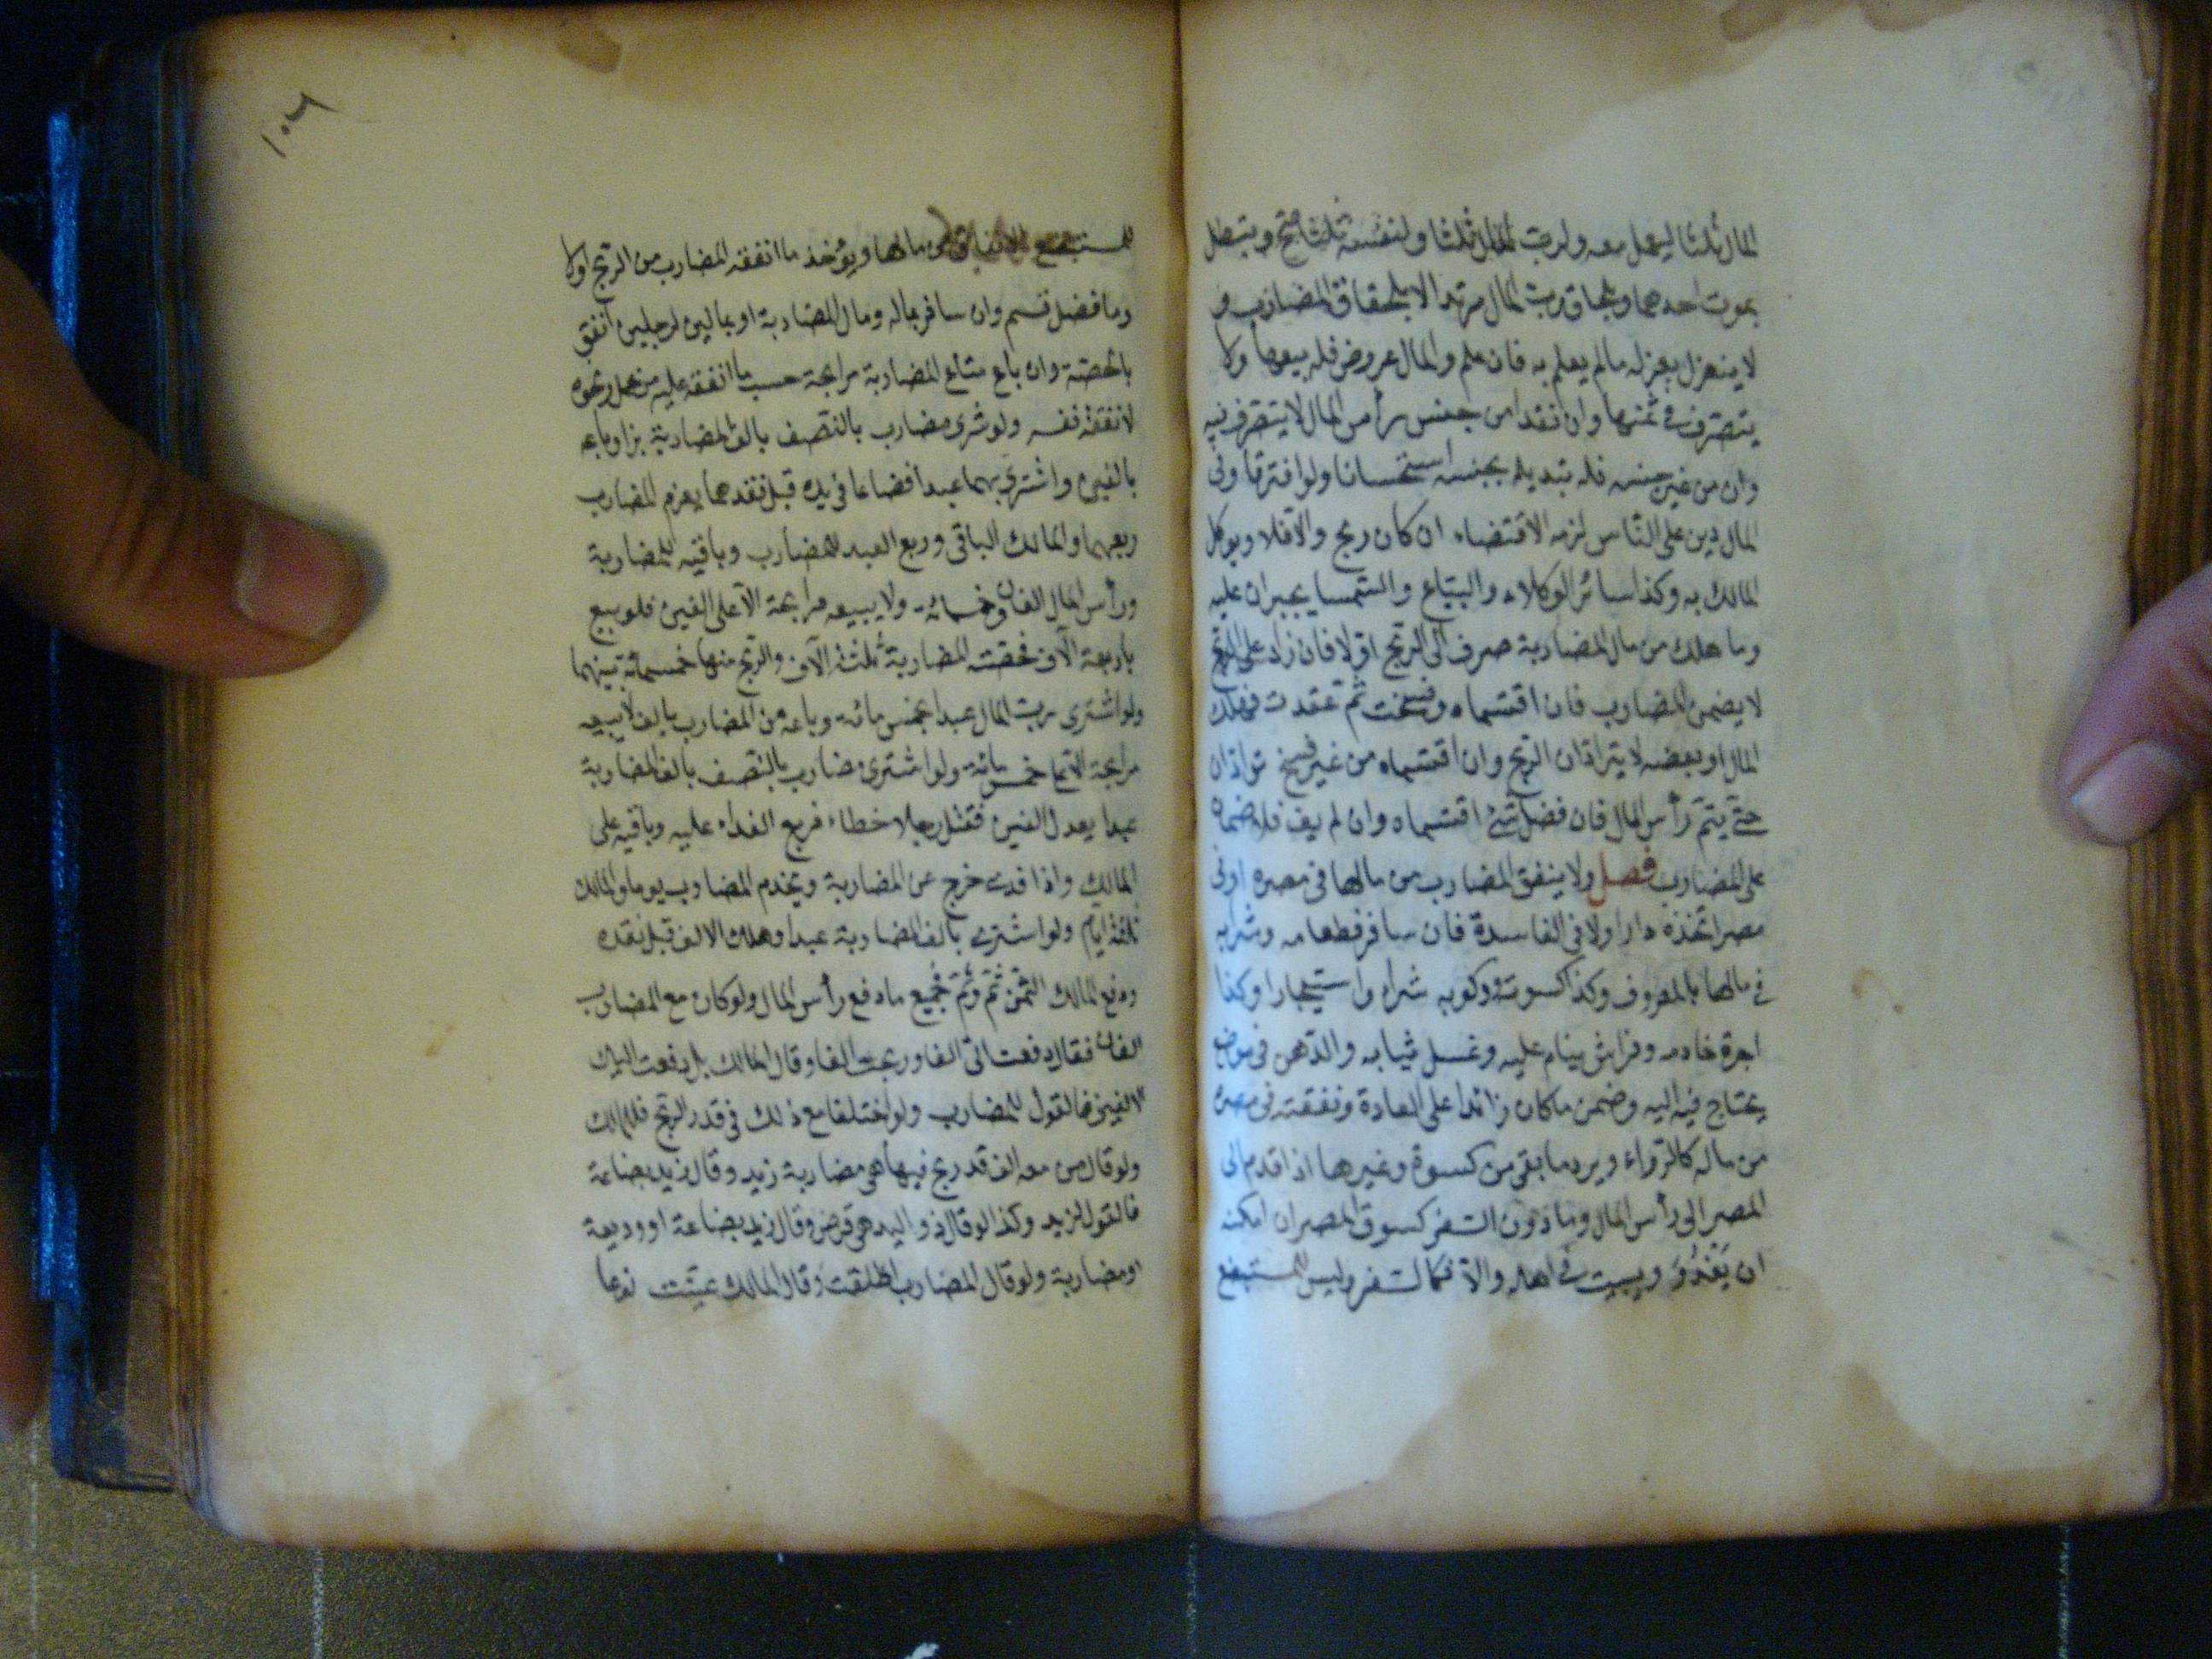 المال ثلثا ليعمل معه ولرب المال ثلثا ولنفسه ثلثا صح وتبطل
بموت احدهما وبلحاق رب المال مرتدا لا بلحاق المضارب و
لا ينعزل بعزله مالم يعلم به فان علم والمال عروض فله بيعها ولا
يتصرف في ثمنها وان نقدا من جنس رأس المال لا يتصرف فيه
وان من غير جنسه فله تبديله بجنسه استحسانا ولو افترقا وفي
المال دين على الناس لزمه الاقتضاء ان كان ربح والا فلا ويوكل
المالك به وكذا سائر الوكلاء والبياع والسمسار يجبران عليه
وما هلك من مال المضاربة صرف الى الربح اولا فان زاد على الربح
لا يضمن المضارب فان اقتسماه وفسخت ثم عقدت فهلك
المال او بعضه لا يترادان الربح وان اقتسماه من غير فسخ ترادان
حتى يتم رأس المال فان فضل شئ اقتسماه وان لم يف فلا ضمان
على المضارب فصل ولا ينفق المضارب من مالها في مصره او في
مصر اتخذه دارا ولا في الفاسدة فان سافر فطعامه وشرابه
في مالها بالمعروف وكذا كسوته وركوبه شراء واستيجارا وكذا
اجرة خادمه وفراش ينام عليه وغسل ثيابه والدهن في موضع
يحتاج فيه اليه وضمن ما كان زائدا على العادة ونفقته في مصره
من ماله كالدواء ويرد ما بقي من كسوة وغيرها اذا قدم الى
المصر الى رأس المال وما دون السفر كسوق المصر ان امكنه
ان يغدو ويبيت في اهله والا فكالسفر وليس للمستبضع
١٠٦
للمستبضع الانفاق من مالها ويؤخذ ما انفقه المضارب من الربح اولا
وما فضل قسم وان سافر بماله ومال المضاربة او بمالين لرجلين انفق
بالحصة وان باع متاع المضاربة مرابحة حسب ما انفقه عليه من حمل ونحوه
لا نفقة نفسه ولو شرى مضارب بالنصف بالف المضاربة بزا وباعه
بالفين واشترى بهما عبدا فضاعا في يده قبل نقدهما يغرم المضارب
ربعهما والمالك الباقي وربع العبد للمضارب وباقيه للمضاربة
ورأس المال الفان وخمسمائة ولا يبيعه مرابحة الا على الفين فلو بيع
باربعة آلاف فحصته المضاربة ثلثة الآف والربح منها خمسمائة بينهما
ولو اشترى رب المال عبدا بخمس مائة وباعه من المضارب بالف لا يبيعه
مرابحة الا بخمس مائة ولو اشترى مضارب بالنصف بالف المضاربة
عبدا يعدل الفين فقتل رجلا خطاء فربع الفداء عليه وباقيه على
المالك واذا فدى خرج عن المضاربة ويخدم المضارب يوما والمالك
ثلثة ايام ولو اشترى بالف المضاربة عبدا وهلك الالف قبل نقده
ودفع المالك الثمن ثم وثم فجميع ما دفع رأس المال ولو كان مع المضارب
الفان فقال دفعت الي الفا وربحت الفا وقال المالك بل دفعت اليك
الفين فالقول للمضارب ولو اختلفا مع ذلك في قدر الربح فللمالك
ولو قال من معه الف قد ربح فيها هي مضاربة زيد وقال زيد بضاعة
فالقول لزيد وكذا لو قال ذو اليد هي قرض وقال زيد بضاعة او وديعة
او مضاربة ولو قال المضارب اطلقت وقال المالك عينت نوعا